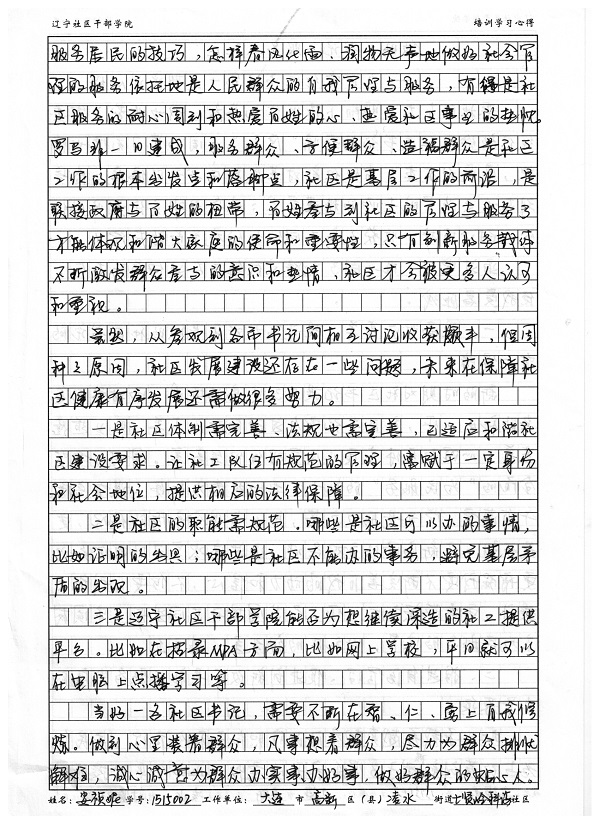 辽宁社区干部学院 培训学习心得
服务居民的技巧，怎样春风化雨、润物无声地做好社会管
理的服务依托地是人民群众的自我管理与服务，有得是社
区服务的耐心周到和热爱百姓的心、热爱社区事业的热忱。
罗马非一日建成，服务群众、方便群众、造福群众是社区
工作的根本出发点和落脚点，社区是基层工作的前沿，是
联接政府与百姓的纽带，百姓参与到社区的管理与服务了
才能体现和谐大家庭的使命和重要性，只有创新服务载体
不断激发群众参与的意识和热情，社区才会被更多人认可
和重视。
虽然，从参观到各市书记间相互讨论收获颇丰，但因
种之原因，社区发展建设还存在一些问题，未来在保障社
区健康有序发展还需做很多努力。
一是社区体制需完善、法规也需完善，已适应和谐社
区建设要求。让社工队伍有规范的管理，需赋于一定身份
和社会地位，提供相应的法律保障。
二是社区的职能需规范。哪些是社区可以办的事情，
比如证明的出具；哪些是社区不能办的事务，避免基层矛
盾的出现。
三是辽宁社区干部学院能否为想继续深造的社工提供
平台。比如在招录MPA方面，比如网上学校，平日就可以
在电脑上点播学习等。
当好一名社区书记，需要不断在智、仁、勇上自我修
炼。做到心里装着群众，凡事想着群众，尽力为群众排忧
解难，诚心诚意为群众办实事办好事，做好群众的贴心人。
姓名：安 学号：1515002 工作单位：大连 市 高新 区（县）凌水 街道 社区